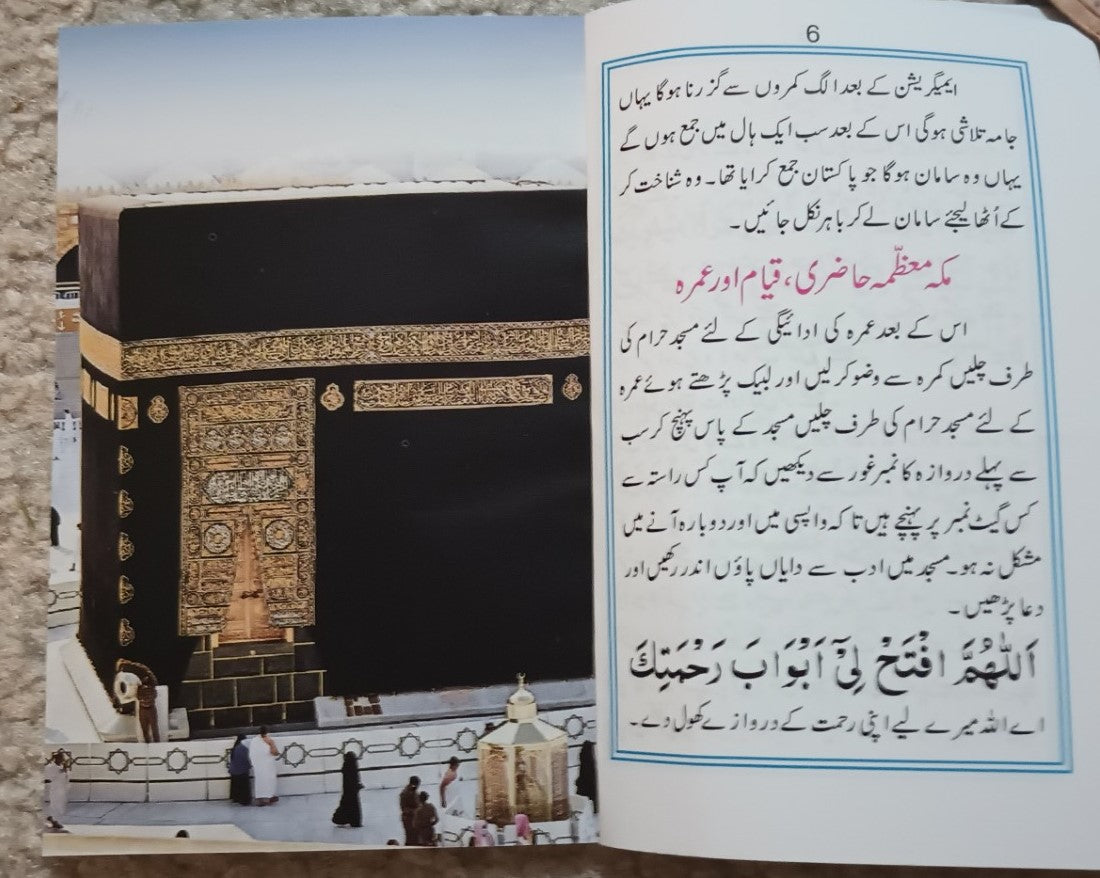 6
ایمیگریشن کے بعد الگ کمروں سے گزرنا ہوگا یہاں
جامہ تلاشی ہوگی اس کے بعد سب ایک ہال میں جمع ہوں گے
یہاں وہ سامان ہوگا جو پاکستان جمع کرایا تھا۔ وہ شناخت کر
کے اُٹھا لیجئے سامان لے کر باہر نکل جائیں۔
مکہ معظّمہ حاضری، قیام اور عمرہ
اس کے بعد عمرہ کی ادائیگی کے لئے مسجد حرام کی
طرف چلیں کمرہ سے وضو کر لیں اور لبیک پڑھتے ہوئے عمرہ
کے لئے مسجد حرام کی طرف چلیں مسجد کے پاس پہنچ کر سب
سے پہلے دروازہ کا نمبر غور سے دیکھیں کہ آپ کس راستہ سے
کس گیٹ نمبر پر پہنچے ہیں تاکہ واپسی میں اور دوبارہ آنے میں
مشکل نہ ہو۔ مسجد میں ادب سے دایاں پاؤں اندر رکھیں اور
دعا پڑھیں۔
اَللّٰهُمَّ افْتَحْ لِیْٓ اَبْوَابَ رَحْمَتِكَ
اے اللہ میرے لیے اپنی رحمت کے دروازے کھول دے۔